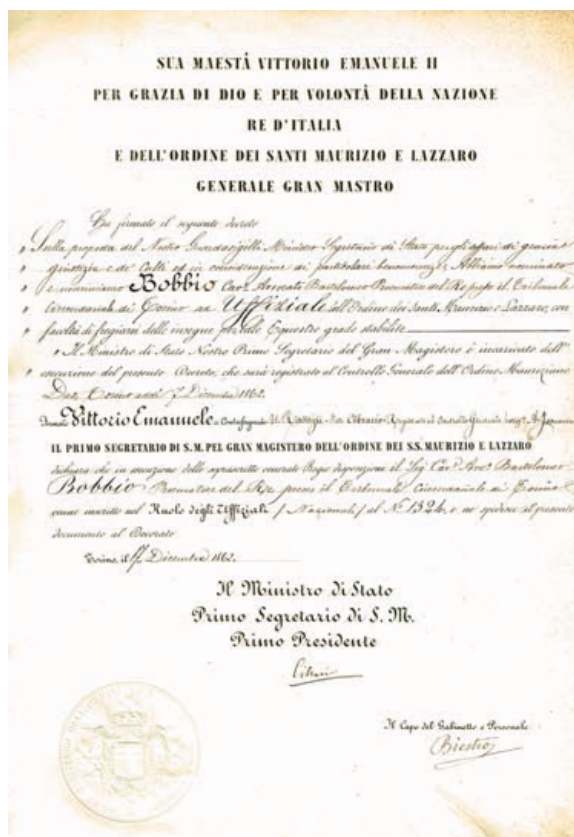 SUA MAESTÀ VITTORIO EMANUELE II
PER GRAZIA DI DIO E PER VOLONTÀ DELLA NAZIONE
RE D'ITALIA
E DELL'ORDINE DEI SANTI MAURIZIO E LAZZARO
GENERALE GRAN MASTRO
Ha firmato il seguente decreto
Sulla proposta del Nostro Guardasigilli Ministro Segretario di Stato per gli affari di grazia
giustizia e de' Culti ed in considerazione di particolari benemerenze; Abbiamo nominato
e nominiamo Bobbio Cav. Avvocato Bartolomeo Promotore del Re presso il Tribunale
Circondariale di Torino ad Uffiziale dell'Ordine dei Santi Maurizio e Lazzaro, con
facoltà di fregiarsi delle insegne per tale Equestre grado stabilite
Il Ministro di Stato Nostro Primo Segretario del Gran Magistero è incaricato dell'
esecuzione del presente Decreto, che sarà registrato al Controllo Generale dell'Ordine Mauriziano
Dat. Torino addì 7 Dicembre 1862.
Vittorio Emanuele U. Rattazzi Cibrario
IL PRIMO SEGRETARIO DI S.M. PEL GRAN MAGISTERO DELL'ORDINE DEI S.S. MAURIZIO E LAZZARO
dichiara che in esecuzione delle soprascritte Regie disposizioni il Sig. Cav. Avv. Bartolomeo
Bobbio Promotore del Re presso il Tribunale Circondariale di Torino
venne inscritto nel Ruolo degli Uffiziali (Nazionali) al N. 1324, e ne spedisce il presente
documento al Decorato
Torino, il 17 Dicembre 1862.
Il Ministro di Stato
Primo Segretario di S. M.
Primo Presidente
Cibrario
Il Capo del Gabinetto e Personale
Biestro